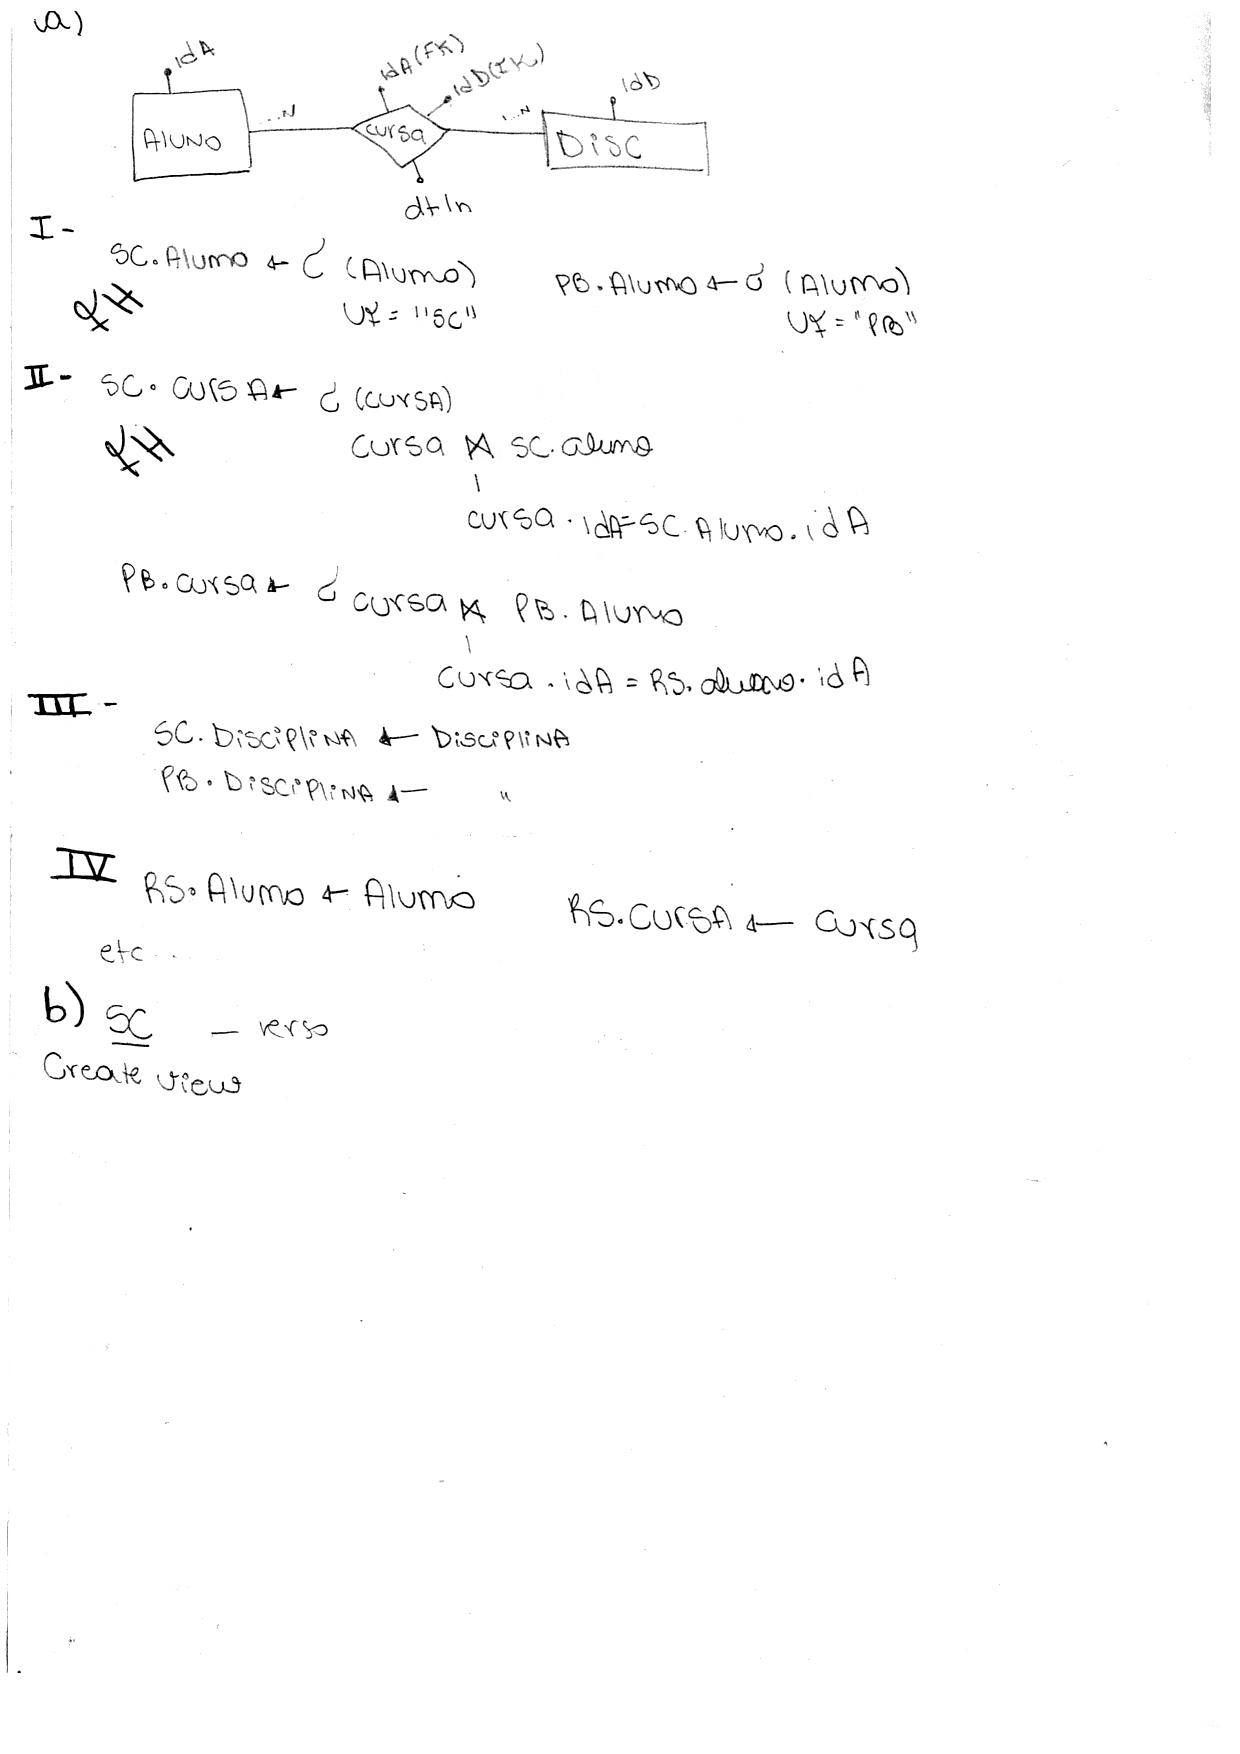 a)
idA
idA(FK)
idD(FK)
idD
...N
...N
Aluno
cursa
Disc
dtIn
I-
SC.Aluno ← σ (Aluno)
UF = "SC"
PB.Aluno ← σ (Aluno)
UF = "PB"
FH
II- SC.cursA ← σ (cursA)
FH
cursa ⋈ SC.aluno
cursa.idA=SC.Aluno.idA
PB.cursa ← σ cursa ⋈ PB.Aluno
cursa.idA = RS.aluno.idA
III-
SC.DisciplinA ← DisciplinA
PB.DisciplinA ← "
IV RS.Aluno ← Aluno
RS.CURSA ← cursa
etc...
b) SC — verso
Create view